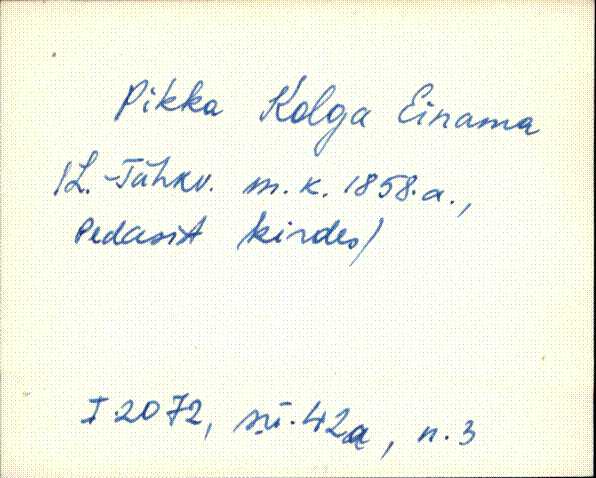 Pikka Kolga Einama
/L.-Tähkv. m.k. 1858.a.,
Pedasist kirdes/
I 2072, sü.42a, n.3